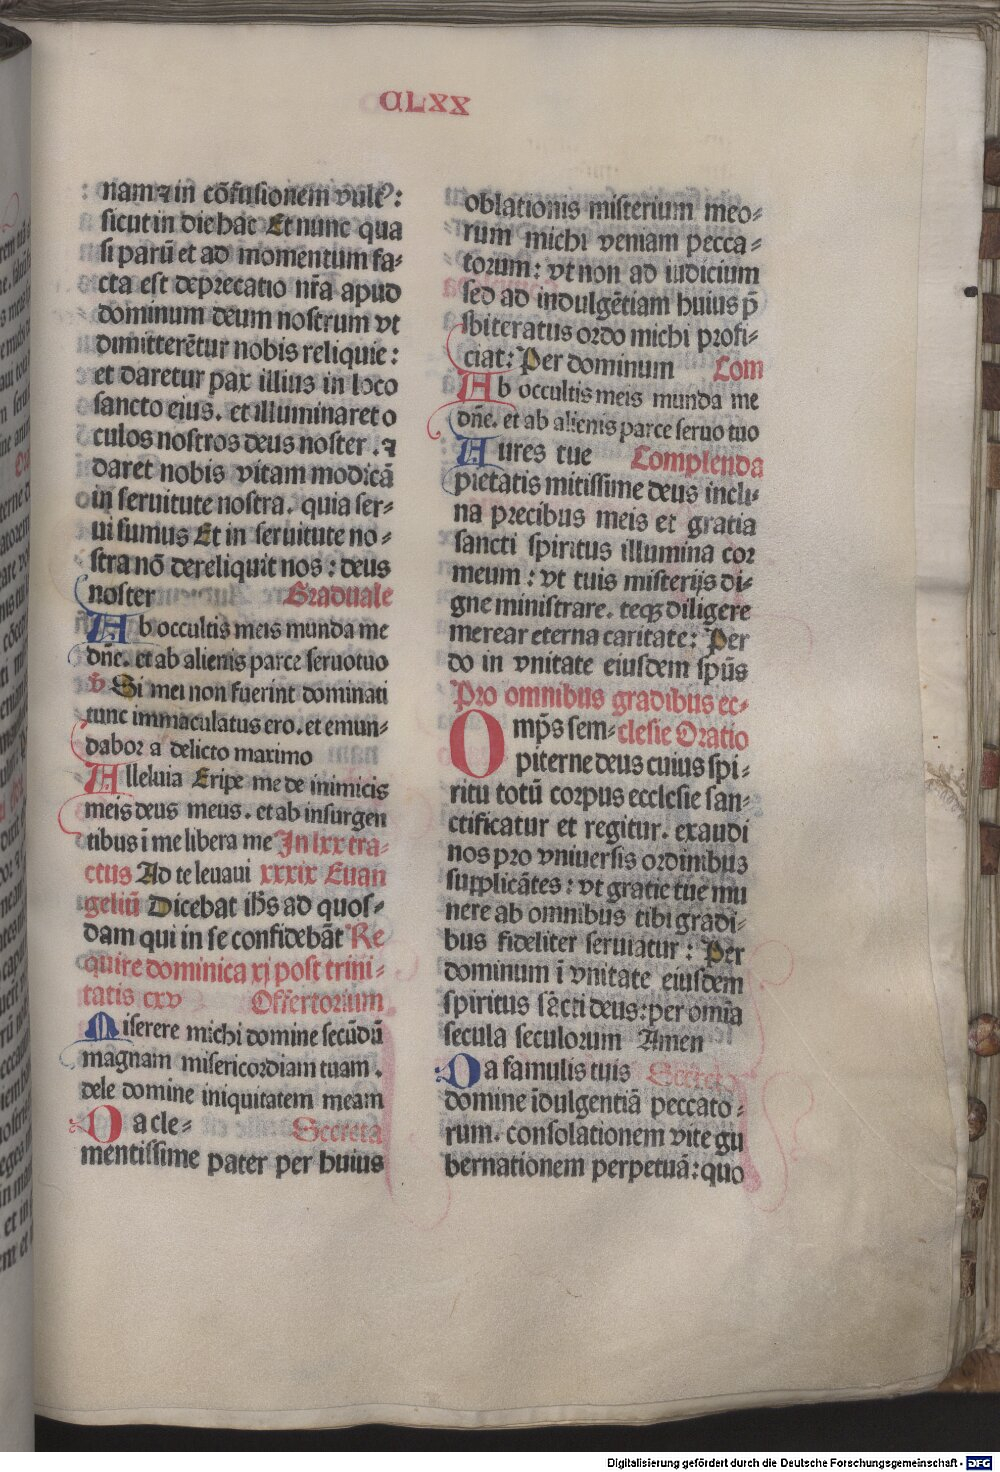 CLXX
nam ⁊ in cōfusionem vult᷒:
sicut in die hac Et nunc qua
si parū et ad momentum fa-
cta est deprecatio nr̄a apud
dominum deum nostrum vt
dimitterētur nobis reliquie:
et daretur pax illius in loco
sancto eius. et illuminaret o
culos nostros deus noster. ⁊
daret nobis vitam modicā
in seruitute nostra. quia ser-
ui sumus Et in seruitute no-
stra nō dereliquit nos: deus
noster Graduale
Ab occultis meis munda me
dn̄e. et ab alienis parce seruo tuo
v̄ Si mei non fuerint dominati
tunc immaculatus ero. et emun-
dabor a delicto maximo
Alleluia Eripe me de inimicis
meis deus meus. et ab insurgen
tibus ī me libera me In lxx tra-
ctus Ad te leuaui xxxix Euan
geliū Dicebat ih̄s ad quos-
dam qui in se confidebāt Re
quire dominica xj post trini-
tatis cxv Offertorium
Miserere michi domine secūdū
magnam misericordiam tuam.
dele domine iniquitatem meam
Da cle- Secreta
mentissime pater per huius
oblationis misterium meo-
rum michi veniam pecca-
torum: vt non ad iudicium
sed ad indulgētiam huius p̄
sbiteratus ordo michi profi-
ciat: Per dominum Com
Ab occultis meis munda me
dn̄e. et ab alienis parce seruo tuo
Aures tue Complenda
pietatis mitissime deus incli-
na precibus meis et gratia
sancti spiritus illumina cor
meum: vt tuis misterijs di-
gne ministrare. teqꝫ diligere
merear eterna caritate: Per
do in vnitate eiusdem sp̄us
Pro omnibus gradibus ec-
Omp̄s sem- clesie Oratio
piterne deus cuius spi-
ritu totū corpus ecclesie san-
ctificatur et regitur. exaudi
nos pro vniuersis ordinibus
supplicātes: vt gratie tue mu
nere ab omnibus tibi gradi-
bus fideliter seruiatur: Per
dominum ī vnitate eiusdem
spiritus sācti deus: per omīa
secula seculorum Amen
Da famulis tuis Secreta
domine īdulgentiā peccato-
rum. consolationem vite gu
bernationem perpetuā: quo
Digitalisierung gefördert durch die Deutsche Forschungsgemeinschaft - DFG